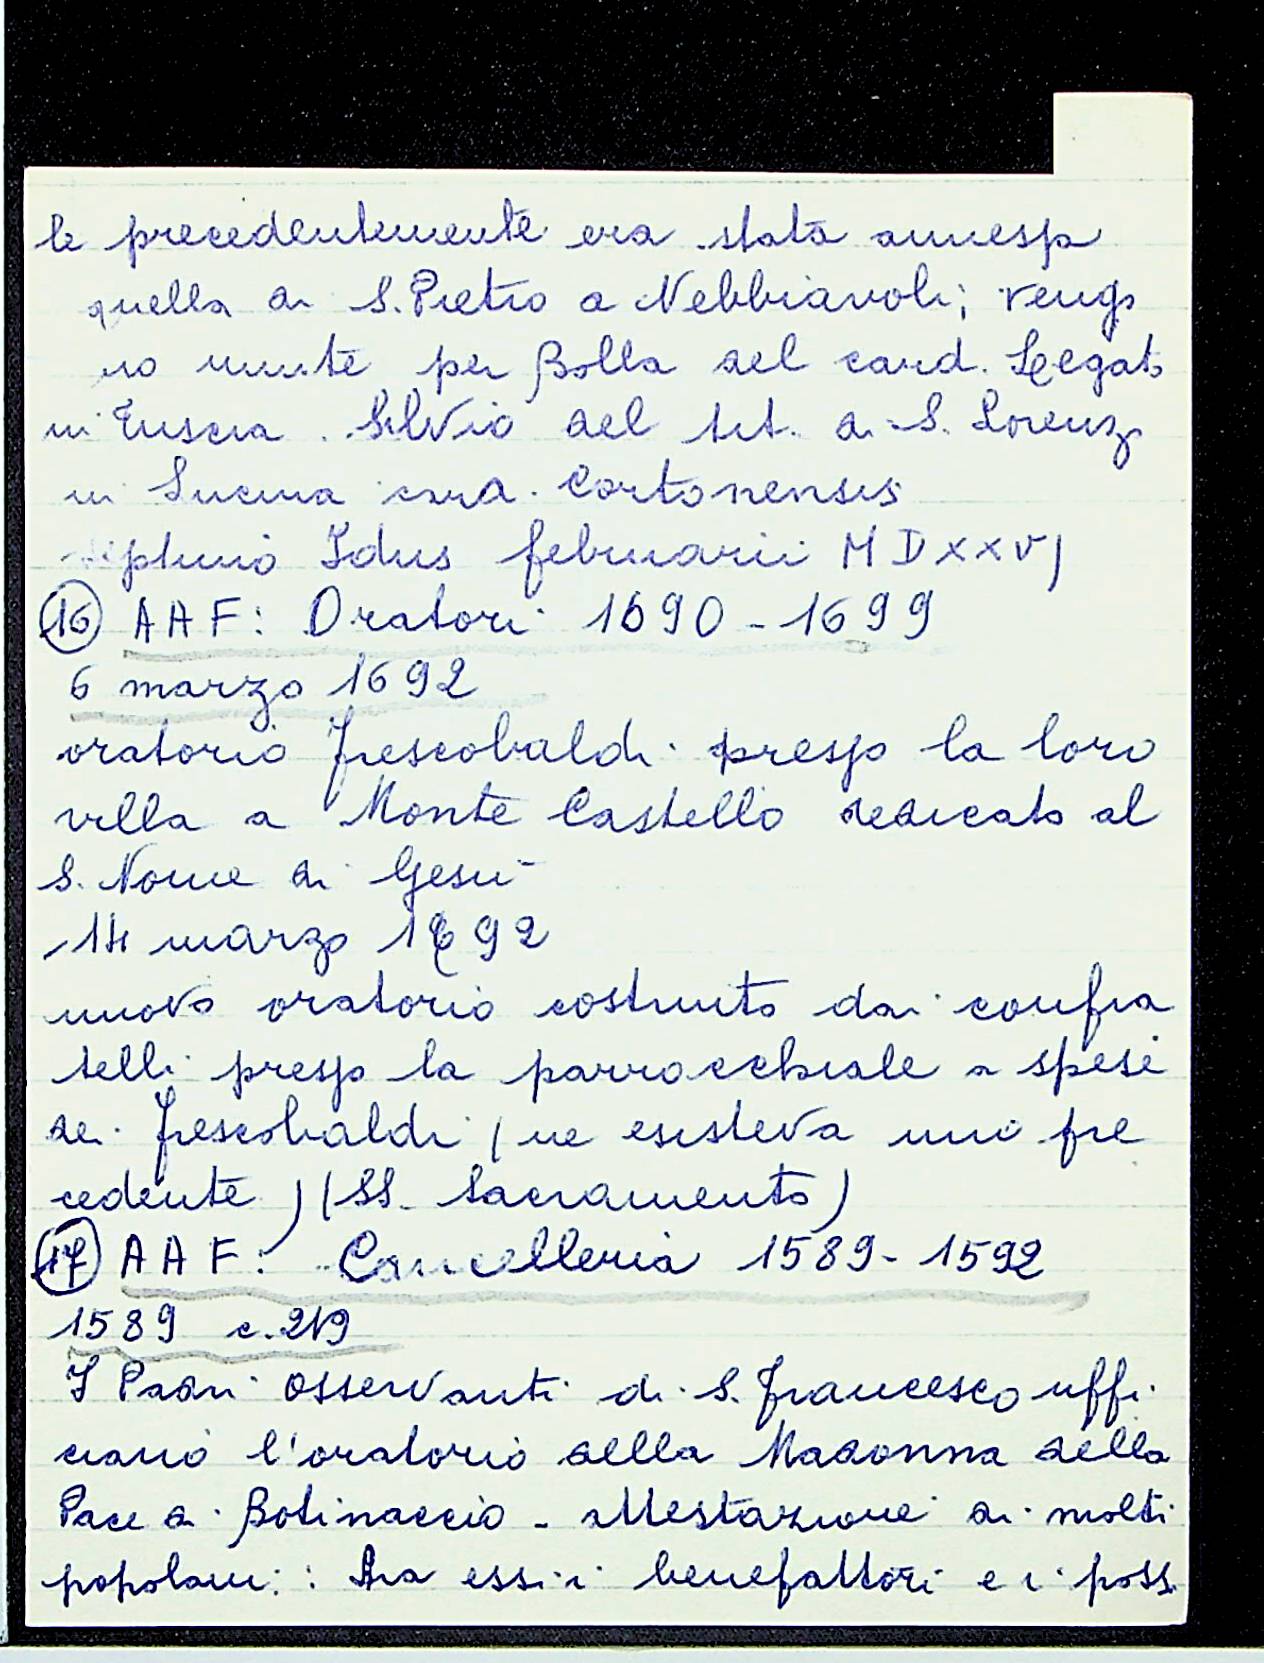 le precedentemente era stata annessa
quella di S. Pietro a Nebbiavoli; vengo
no unite per Bolla del card. Legato
in Tuscia. Silvio del tit. di S. Lorenzo
in Lucina card. Cortonensis
Idus februarii MDXXVJ
16 AAF: Oratori 1690-1699
6 marzo 1692
oratorio Frescobaldi presso la loro
villa a Monte Castello dedicato al
S. Nome di Gesù
14 marzo 1692
nuovo oratorio costruito dai confra
telli presso la parrocchiale a spese
dei Frescobaldi (ne esisteva uno pre
cedente) (SS. Sacramento)
17 AAF: Cancelleria 1589-1592
1589 c. 219
I Padri Osservanti di S. Francesco uffi
ciano l'oratorio della Madonna della
Pace di Botinaccio - attestazione di molti
popolani: tra essi i benefattori e i poss